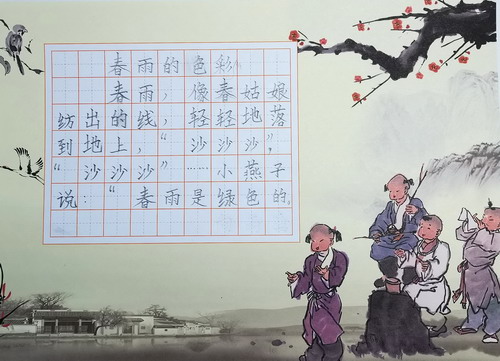 春雨的色彩
春雨，像春姑娘
纺出的线，轻轻地落
到地上，“沙沙沙，
“沙沙沙”……小燕子
说：“春雨是绿色的。